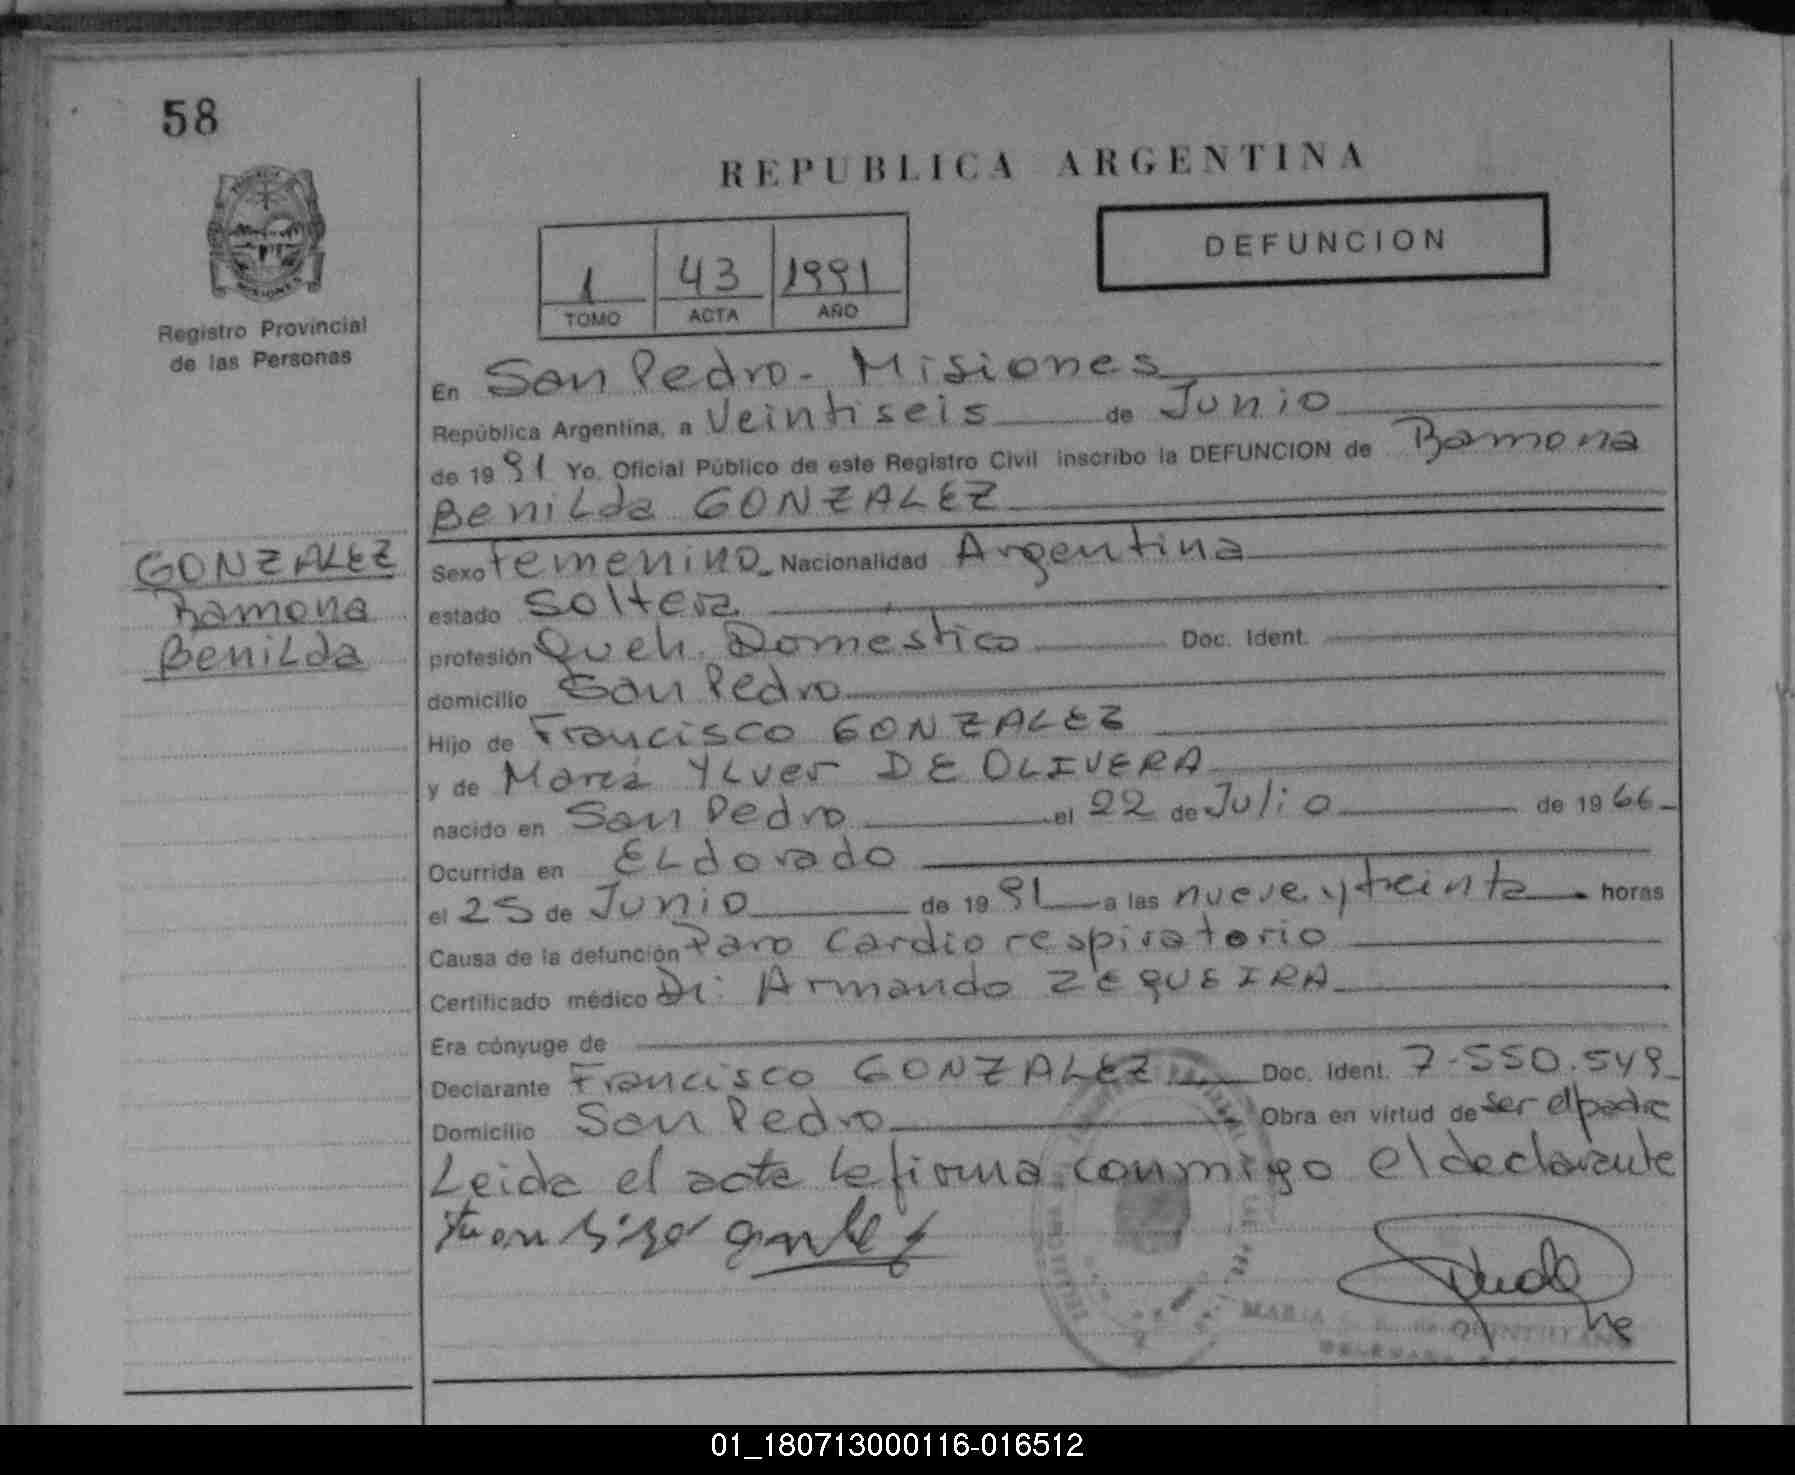 58
REPUBLICA ARGENTINA
DEFUNCION
1 43 1991
TOMO ACTA AÑO
MISIONES
Registro Provincial
de las Personas
En San Pedro - Misiones
República Argentina, a Veintiseis de Junio
de 1991 Yo, Oficial Público de este Registro Civil inscribo la DEFUNCION de Ramona
Benilda GONZALEZ
GONZALEZ
Ramona
Benilda
Sexo Femenino Nacionalidad Argentina
estado Soltera
profesión Queh. Domestico Doc. Ident.
domicilio San Pedro
Hijo de Francisco GONZALEZ
y de María Ylver DE OLIVERA
nacido en San Pedro el 22 de Julio de 1966
Ocurrida en Eldorado
el 25 de Junio de 1991 a las nueve y treinta horas
Causa de la defunción Paro cardio respiratorio
Certificado médico Dr. Armando ZEQUEIRA
Era cónyuge de
Declarante Francisco GONZALEZ Doc. Ident. 7.550.549
Domicilio San Pedro Obra en virtud de ser el padre
Leida el acta la firma conmigo el declarante
MARIA
01_180713000116-016512